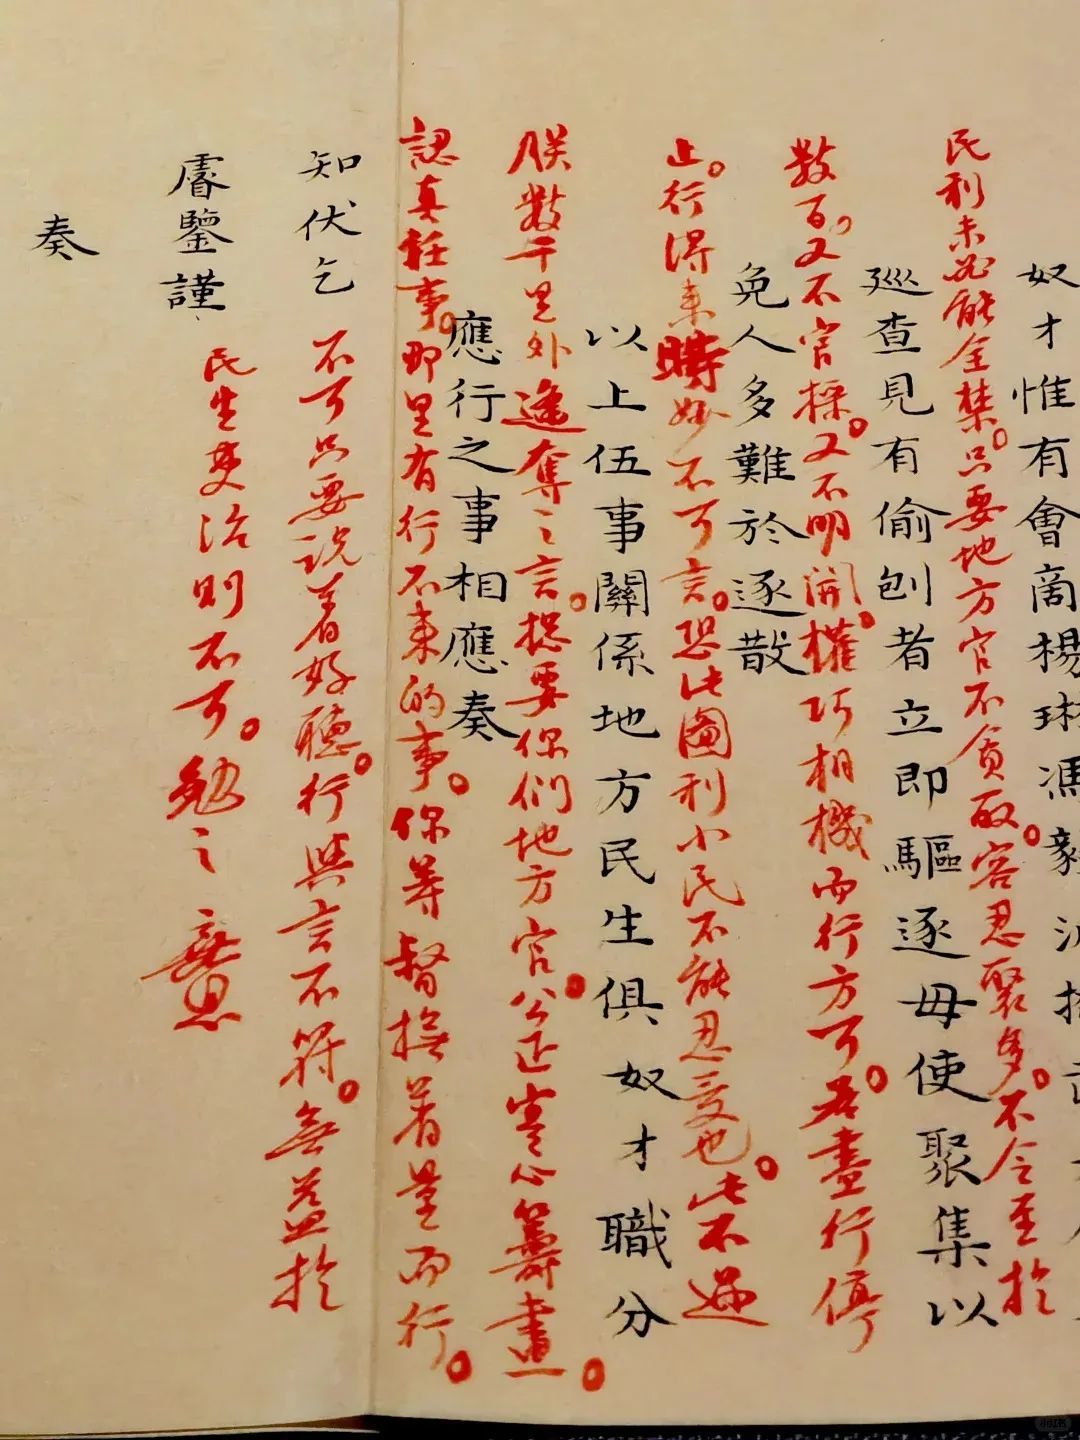 奴才惟有會商楊琳馮毅
民利未必能全禁。只要地方官不貪取。容忍聚多。不令至於
巡查見有偷刨者立即驅逐毋使聚集以
數百。又不官採。又不明開。權巧相機而行方可。若盡行停
免人多難於逐散
止。行得來時妙不可言。恐此圖利小民不能忍受也。此不過
以上伍事關係地方民生俱奴才職分
朕數千里外遙奪之言。總要你們地方官。公正寔心籌畫。
應行之事相應奏
認真任事。那里有行不來的事。你等督撫著量而行。
知伏乞
不可只要說著好聽。行與言不符。無益於
睿鑒謹
民生吏治則不可。勉之
奏